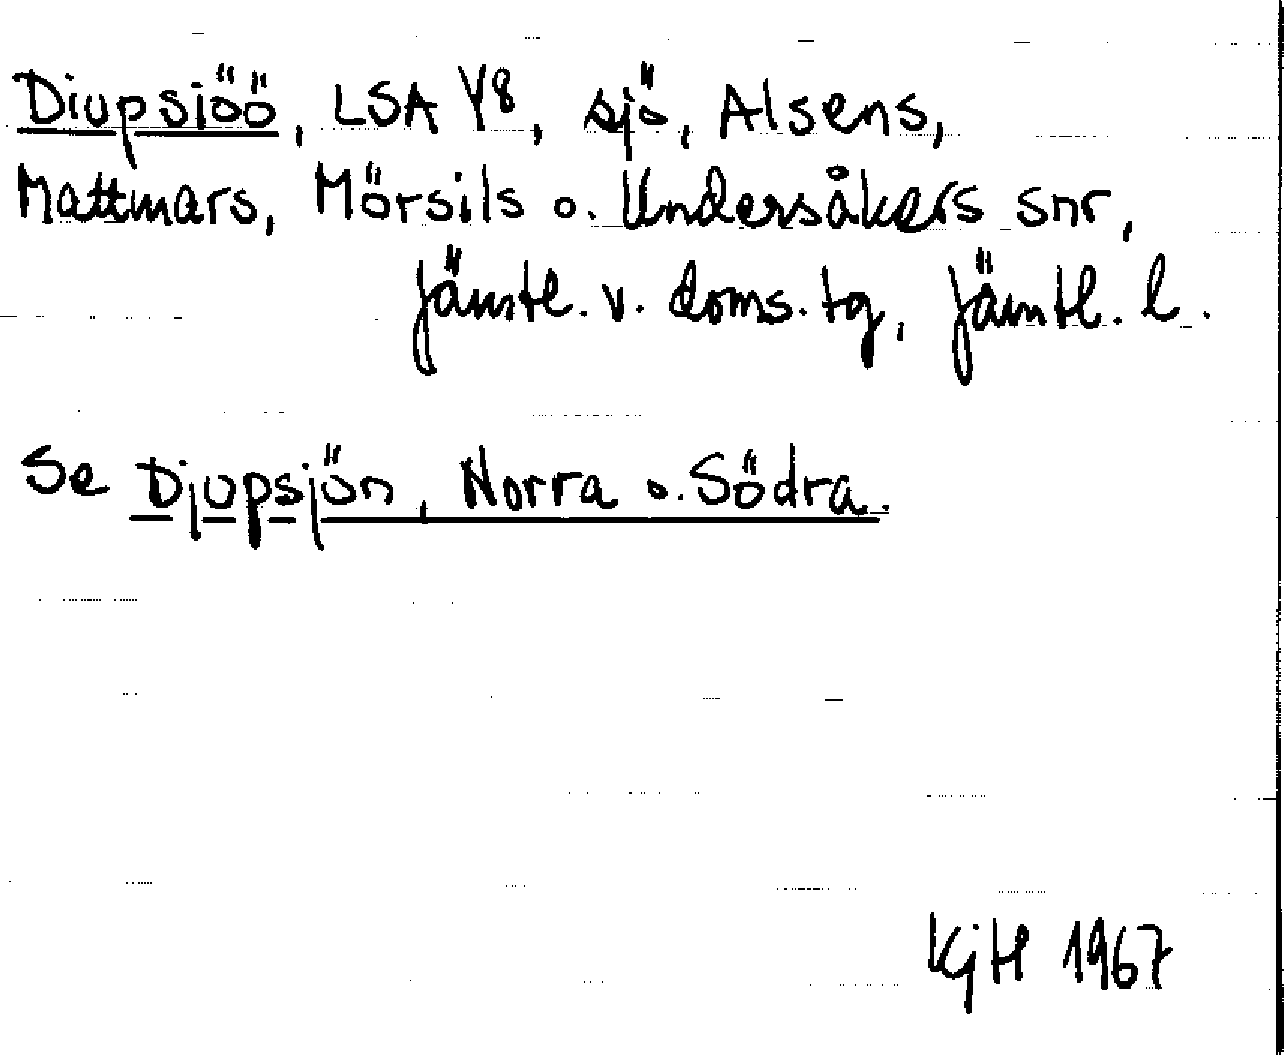 Diupsiöö, LSA Y8, sjö, Alsens,
Mattmars, Mörsils o. Undersåkers snr,
Jämtl. v. doms. tg, Jämtl. l.
Se Djupsjön, Norra o. Södra.
KjH 1967